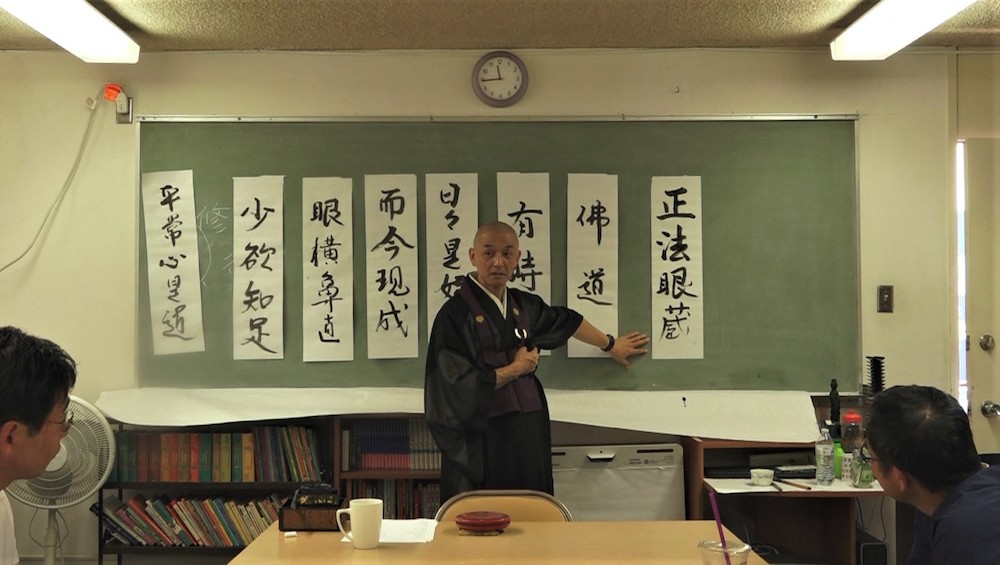 正法眼蔵
佛道
有時
日々是好
而今現成
眼横鼻直
少欲知足
修
平常心是道